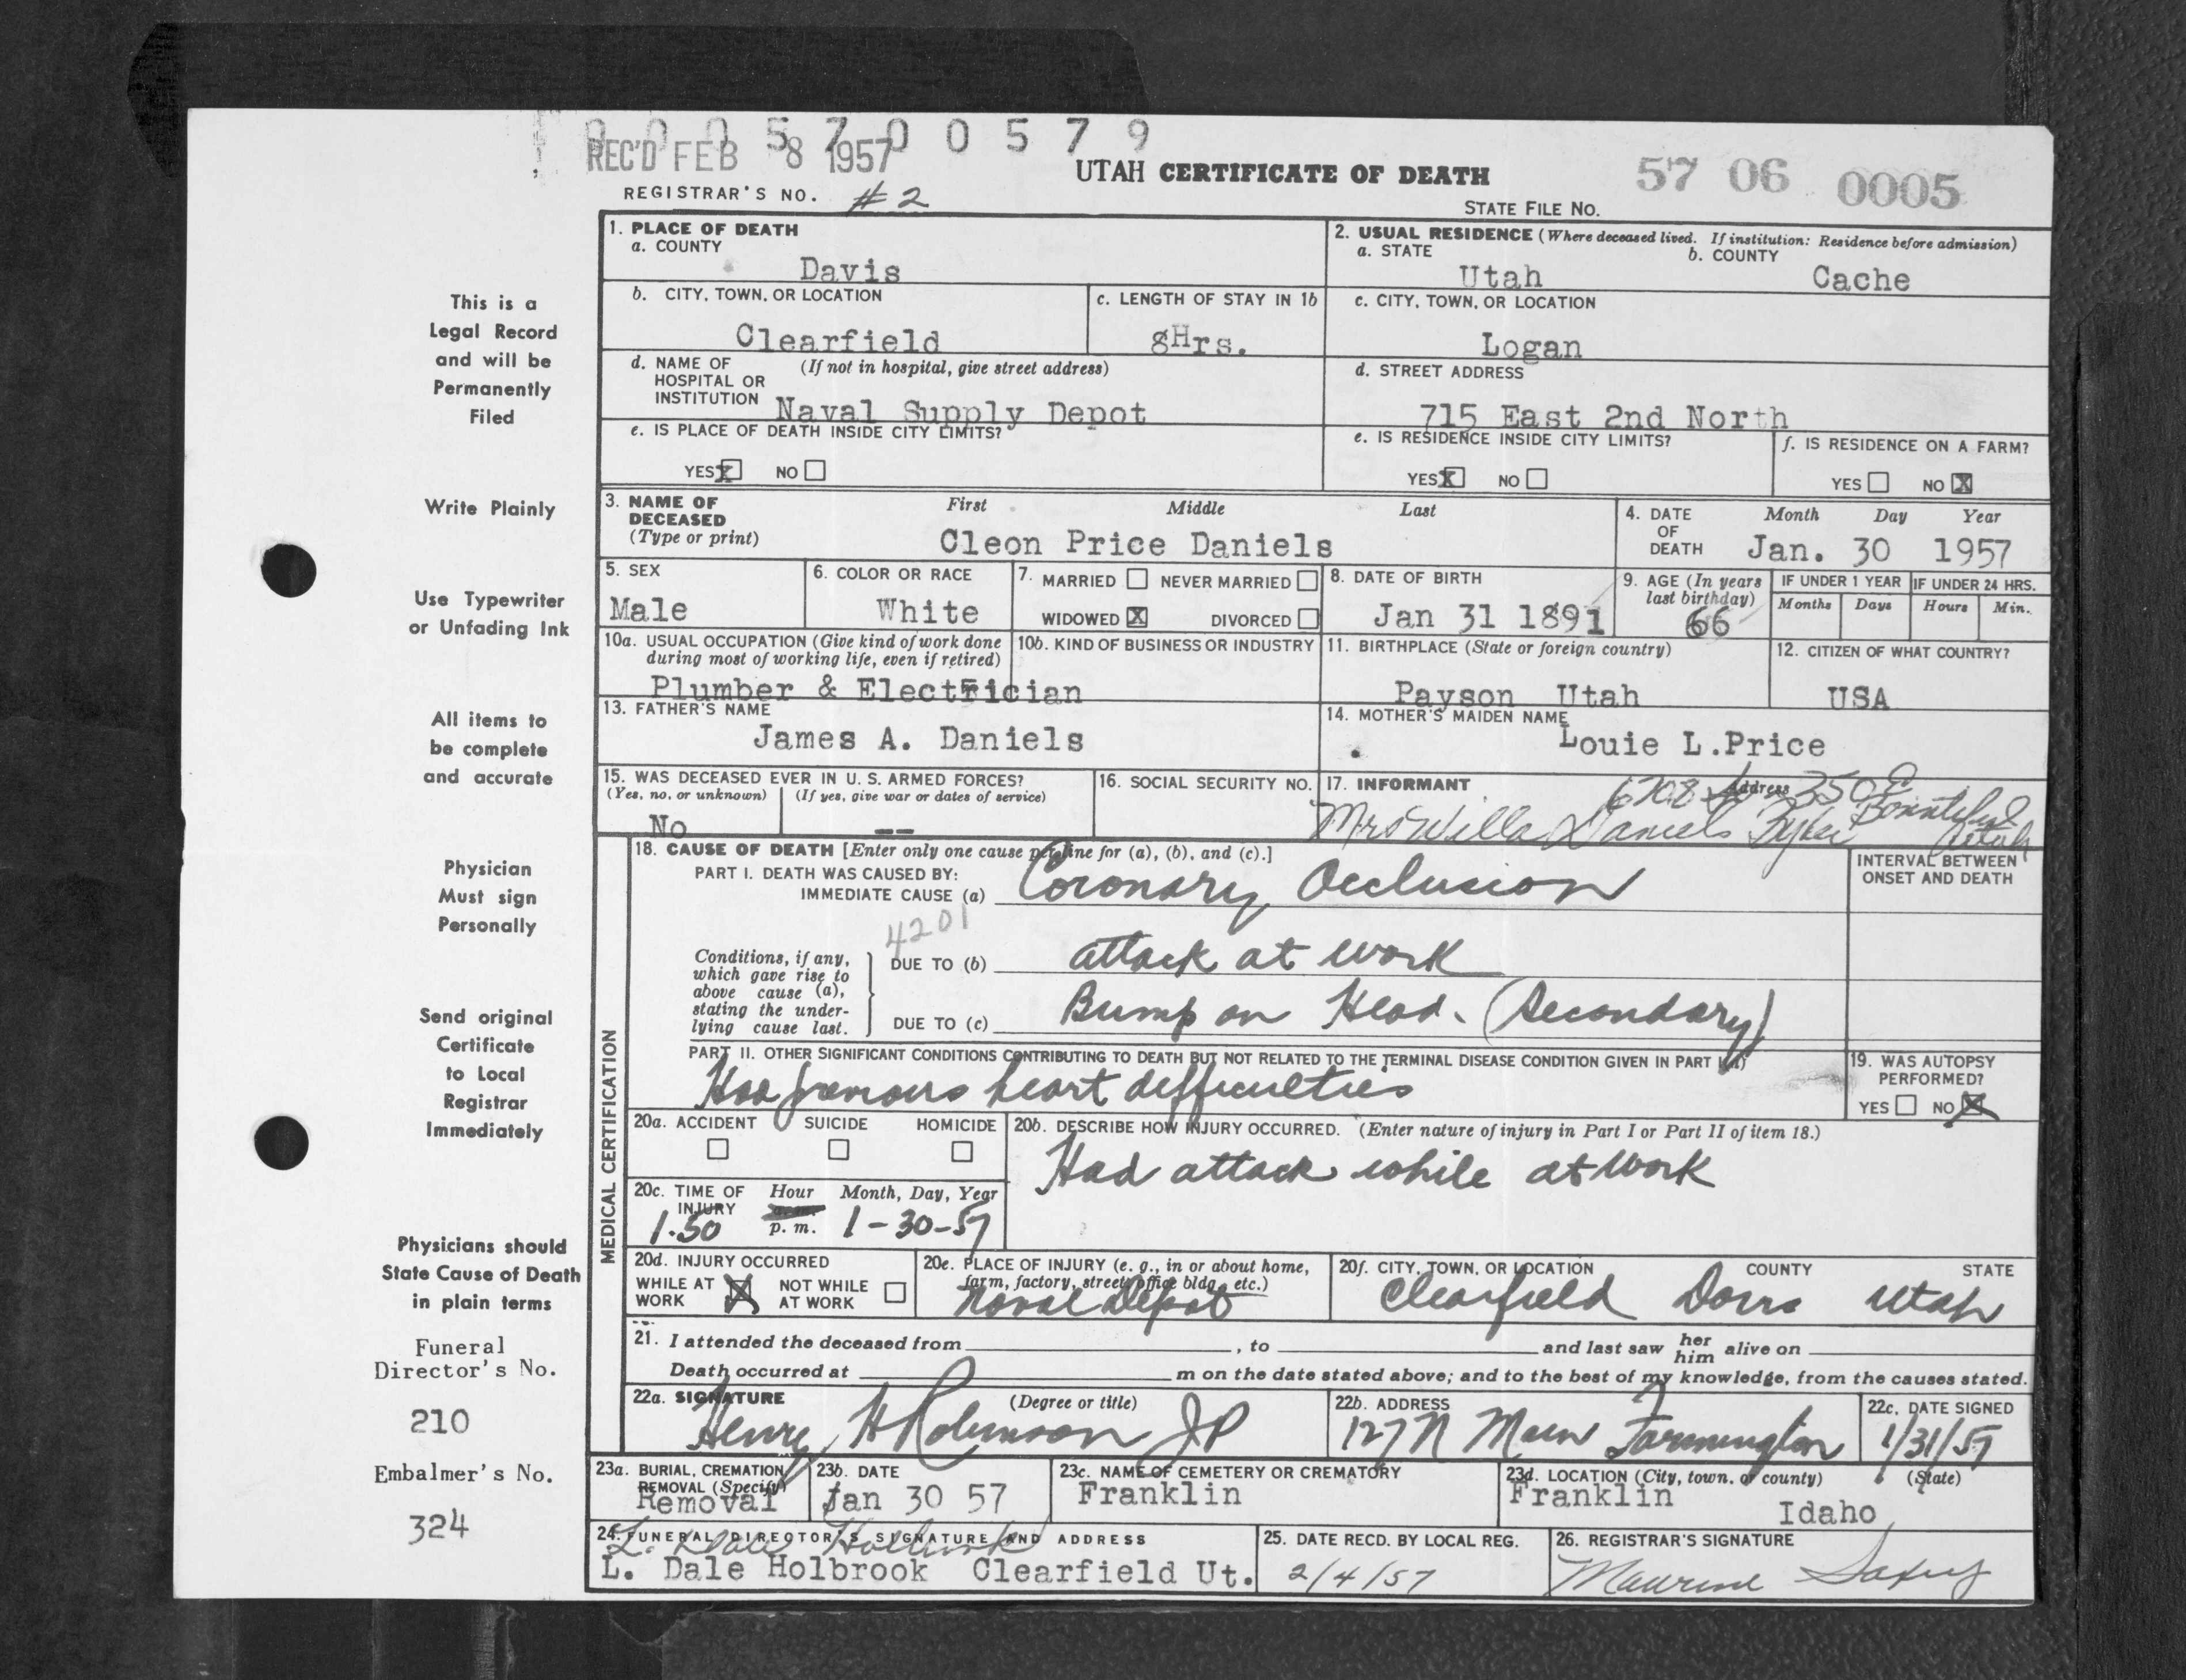 0005700579
REC'D FEB 8 1957
UTAH CERTIFICATE OF DEATH
57 06 0005
REGISTRAR'S NO. #2
STATE FILE NO.
1. PLACE OF DEATH
a. COUNTY
Davis
2. USUAL RESIDENCE (Where deceased lived. If institution: Residence before admission)
a. STATE b. COUNTY
Utah Cache
b. CITY, TOWN, OR LOCATION
Clearfield
c. LENGTH OF STAY IN 1b
8Hrs.
c. CITY, TOWN, OR LOCATION
Logan
d. NAME OF HOSPITAL OR INSTITUTION (If not in hospital, give street address)
Naval Supply Depot
d. STREET ADDRESS
715 East 2nd North
e. IS PLACE OF DEATH INSIDE CITY LIMITS?
YES X NO
e. IS RESIDENCE INSIDE CITY LIMITS?
YES X NO
f. IS RESIDENCE ON A FARM?
YES NO X
3. NAME OF DECEASED (Type or print)
First Middle Last
Cleon Price Daniels
4. DATE OF DEATH
Month Day Year
Jan. 30 1957
5. SEX
Male
6. COLOR OR RACE
White
7. MARRIED NEVER MARRIED
WIDOWED X DIVORCED
8. DATE OF BIRTH
Jan 31 1891
9. AGE (In years last birthday)
66
IF UNDER 1 YEAR
Months Days
IF UNDER 24 HRS.
Hours Min.
10a. USUAL OCCUPATION (Give kind of work done
during most of working life, even if retired)
Plumber & Electrician
10b. KIND OF BUSINESS OR INDUSTRY
11. BIRTHPLACE (State or foreign country)
Payson Utah
12. CITIZEN OF WHAT COUNTRY?
USA
13. FATHER'S NAME
James A. Daniels
14. MOTHER'S MAIDEN NAME
Louie L.Price
15. WAS DECEASED EVER IN U. S. ARMED FORCES?
(Yes, no, or unknown) (If yes, give war or dates of service)
No --
16. SOCIAL SECURITY NO.
17. INFORMANT Address
6708 So 350 E
Mrs Willa Daniels Bountiful
Utah
18. CAUSE OF DEATH [Enter only one cause per line for (a), (b), and (c).]
INTERVAL BETWEEN
ONSET AND DEATH
PART I. DEATH WAS CAUSED BY:
IMMEDIATE CAUSE (a) Coronary Occlusion
4201
Conditions, if any,
which gave rise to
above cause (a),
stating the under-
lying cause last.
DUE TO (b) attack at work
DUE TO (c) Bump on Head. (Secondary)
PART II. OTHER SIGNIFICANT CONDITIONS CONTRIBUTING TO DEATH BUT NOT RELATED TO THE TERMINAL DISEASE CONDITION GIVEN IN PART I(a)
Had previous heart difficulties
19. WAS AUTOPSY
PERFORMED?
YES NO X
20a. ACCIDENT SUICIDE HOMICIDE
20b. DESCRIBE HOW INJURY OCCURRED. (Enter nature of injury in Part I or Part II of item 18.)
Had attack while at work
20c. TIME OF INJURY Hour Month, Day, Year
a. m.
1.50 p. m. 1-30-57
20d. INJURY OCCURRED
WHILE AT WORK X NOT WHILE AT WORK
20e. PLACE OF INJURY (e. g., in or about home,
farm, factory, street, office bldg., etc.)
Naval Depot
20f. CITY, TOWN, OR LOCATION COUNTY STATE
Clearfield Davis Utah
21. I attended the deceased from , to and last saw her him alive on
Death occurred at m on the date stated above; and to the best of my knowledge, from the causes stated.
22a. SIGNATURE (Degree or title)
Henry H Robinson JP
22b. ADDRESS
127 N Main Farmington
22c. DATE SIGNED
1/31/57
23a. BURIAL, CREMATION,
REMOVAL (Specify)
Removal
23b. DATE
Jan 30 57
23c. NAME OF CEMETERY OR CREMATORY
Franklin
23d. LOCATION (City, town, or county) (State)
Franklin Idaho
24. FUNERAL DIRECTOR'S SIGNATURE AND ADDRESS
L. Dale Holbrook
L. Dale Holbrook Clearfield Ut.
25. DATE RECD. BY LOCAL REG.
2/4/57
26. REGISTRAR'S SIGNATURE
Maurine
MEDICAL CERTIFICATION
This is a
Legal Record
and will be
Permanently
Filed
Write Plainly
Use Typewriter
or Unfading Ink
All items to
be complete
and accurate
Physician
Must sign
Personally
Send original
Certificate
to Local
Registrar
Immediately
Physicians should
State Cause of Death
in plain terms
Funeral
Director's No.
210
Embalmer's No.
324